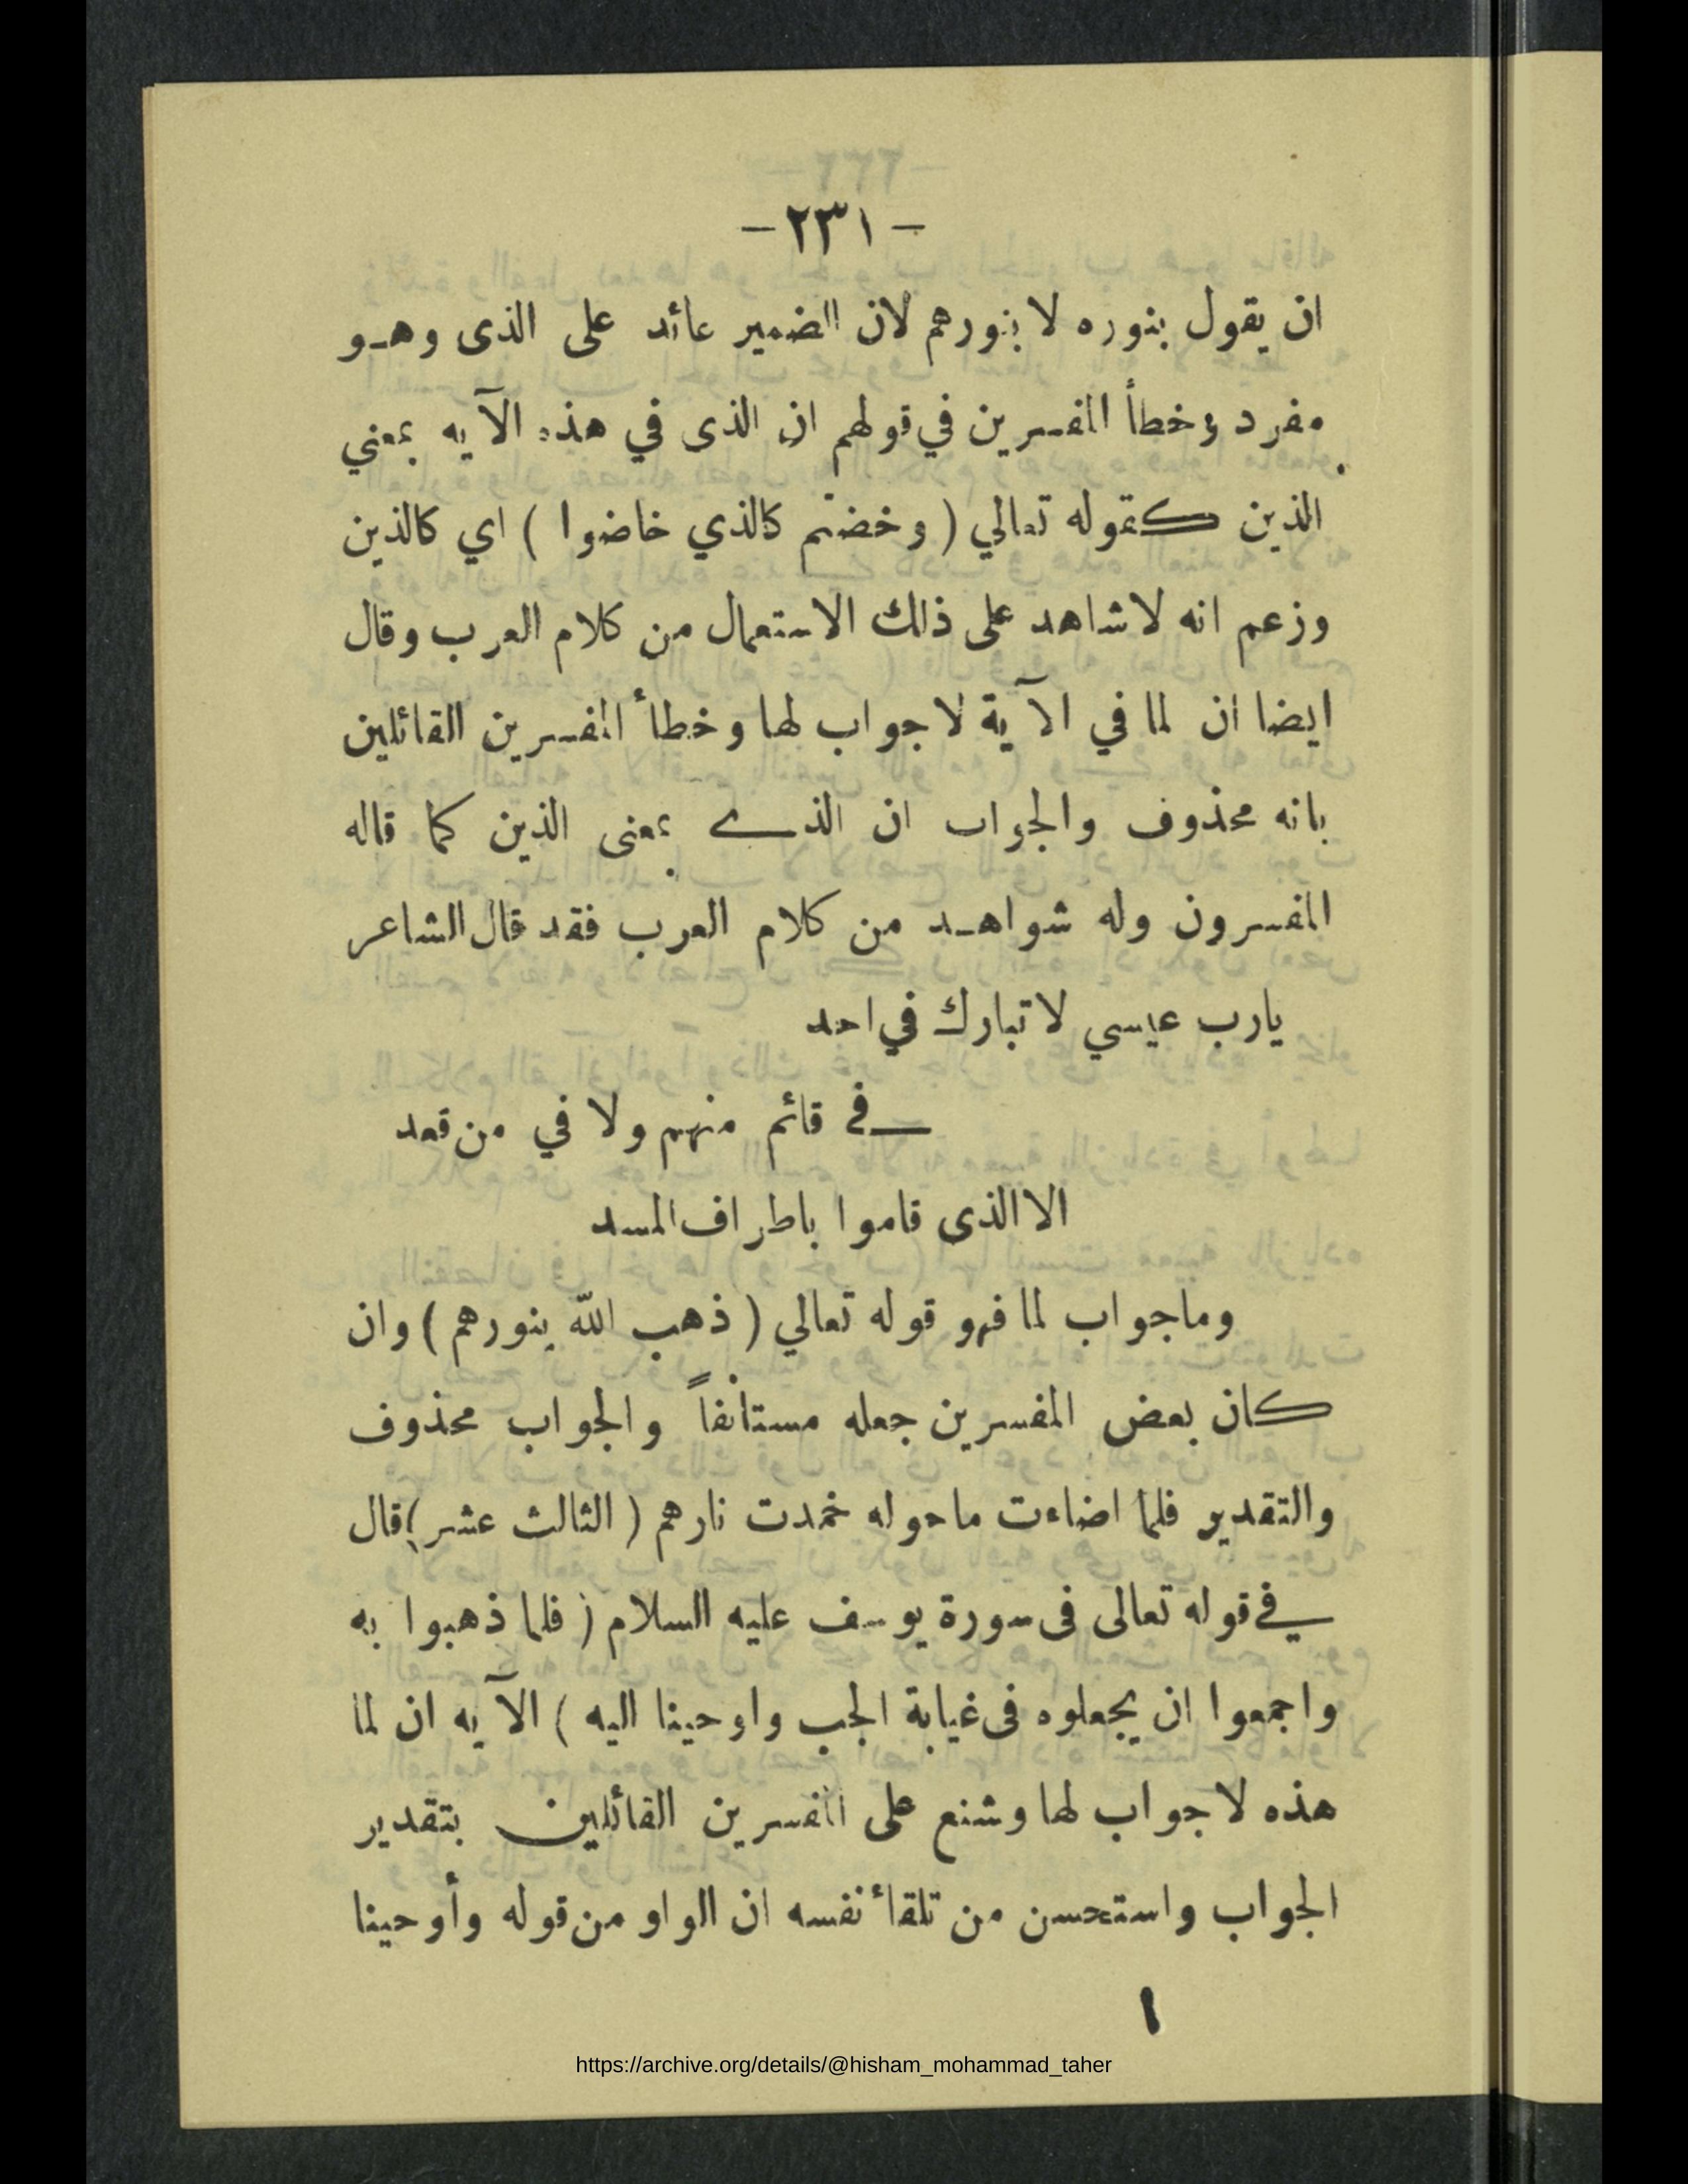 - ٢٣١ -
ان يقول بنوره لا بنورهم لان الضمير عائد على الذى وهـو
مفرد وخطأ المفسرين في قولهم ان الذى في هذه الآيه بمعني
الذين كقوله تعالي ( وخضتم كالذي خاضوا ) اي كالذين
وزعم انه لا شاهد على ذلك الاستعمال من كلام العرب وقال
ايضا ان لما في الآية لا جواب لها وخطأ المفسرين القائلين
بانه محذوف والجواب ان الذے بمعنى الذين كما قاله
المفسرون وله شواهـد من كلام العرب فقد قال الشاعر
يارب عيسي لا تبارك في احد
في قائم منهم ولا في من قعد
الا الذى قاموا باطراف المسد
وماجواب لما فهو قوله تعالي ( ذهب الله بنورهم ) وان
كان بعض المفسرين جعله مستأنفاً والجواب محذوف
والتقدير فلما اضاءت ماحوله خمدت نارهم ( الثالث عشر ) قال
في قوله تعالى فى سورة يوسف عليه السلام ( فلما ذهبوا به
واجمعوا ان يجعلوه فى غيابة الجب واوحينا اليه ) الآيه ان لما
هذه لا جواب لها وشنع على المفسرين القائلين بتقدير
الجواب واستحسن من تلقأ نفسه ان الواو من قوله وأوحينا
https://archive.org/details/@hisham_mohammad_taher